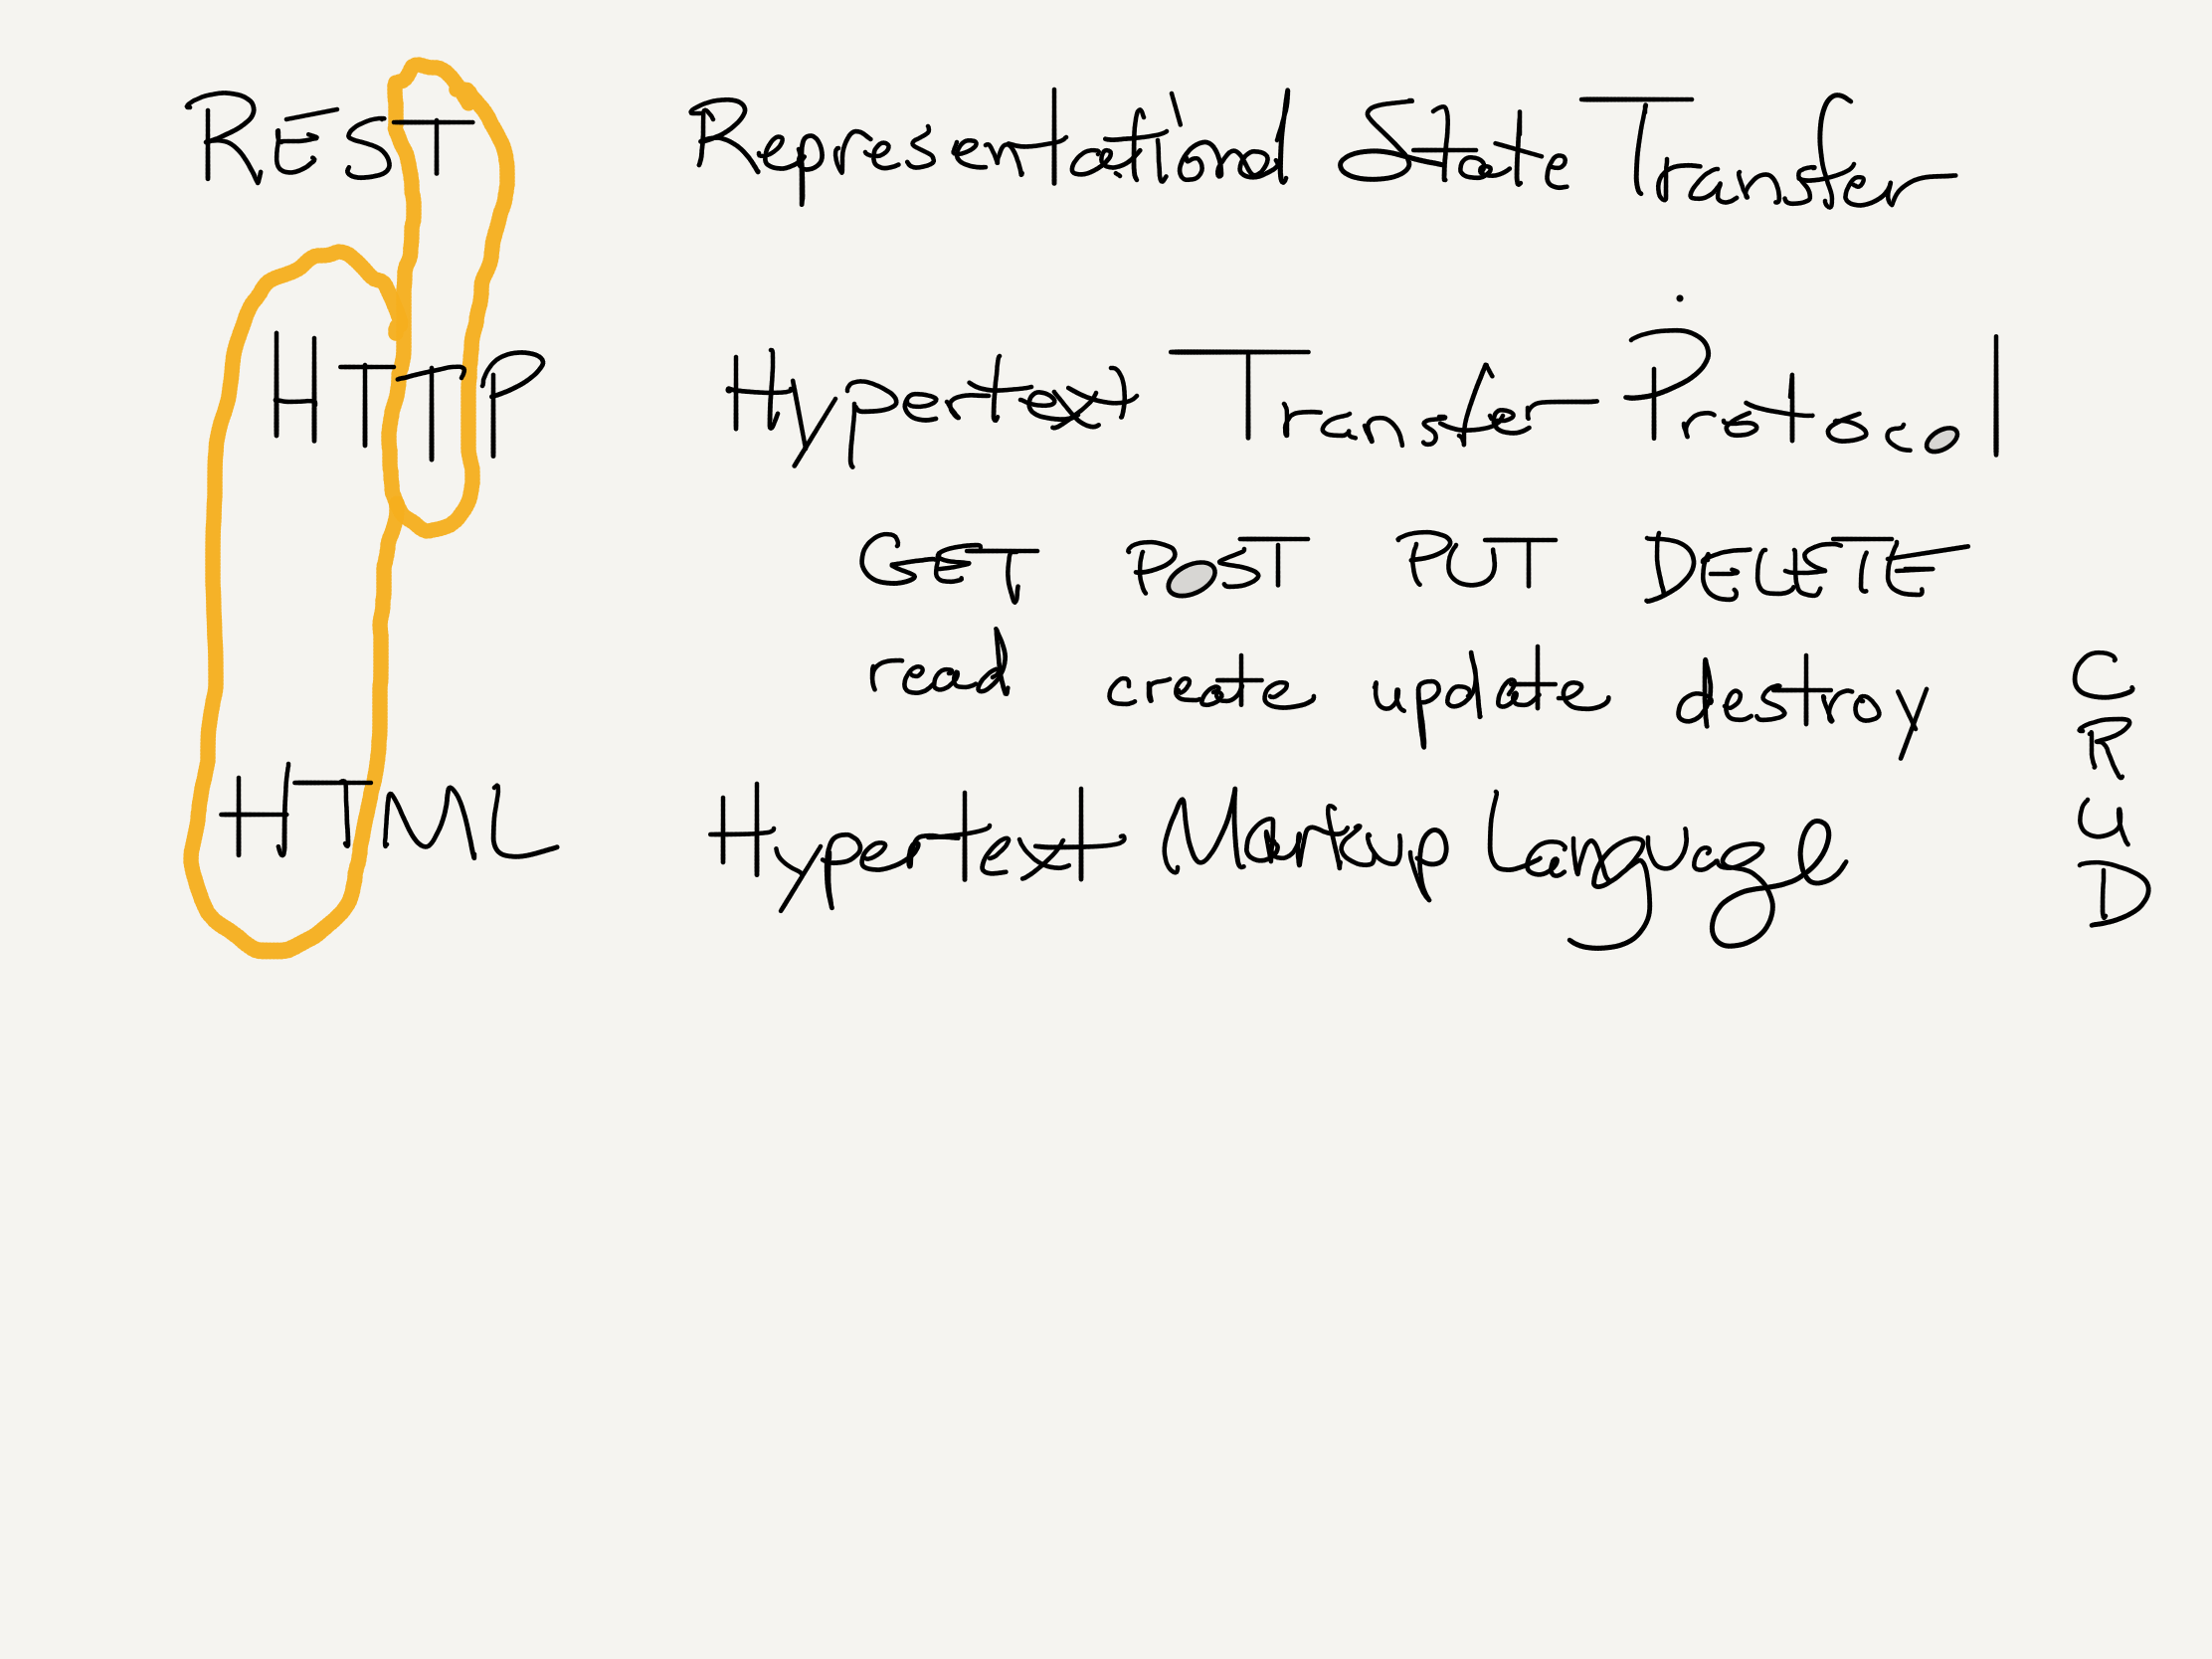 REST Representational State Transfer
HTTP Hypertext Transfer Protocol
GET POST PUT DELETE
read create update destroy
C
R
U
D
HTML Hypertext Markup Language